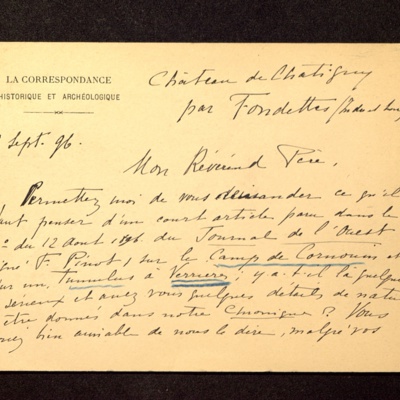 LA CORRESPONDANCE
HISTORIQUE ET ARCHÉOLOGIQUE
Château de Chatigny
par Fondettes (Indre et Loire)
Sept. 96.
Mon Révérend Père,
Permettez moi de vous demander ce qu'il
faut penser d'un court article paru dans le
n° du 12 Aout 1896 du Journal de l'Ouest
signé F. Pinot, sur le Camp de Cornouin et
sur un Tumulus à Verrières; y a-t-il là quelque
sérieux et avez vous quelques détails de nature
être donnés dans notre Chronique? Vous
bien aimable de nous le dire, malgré vos